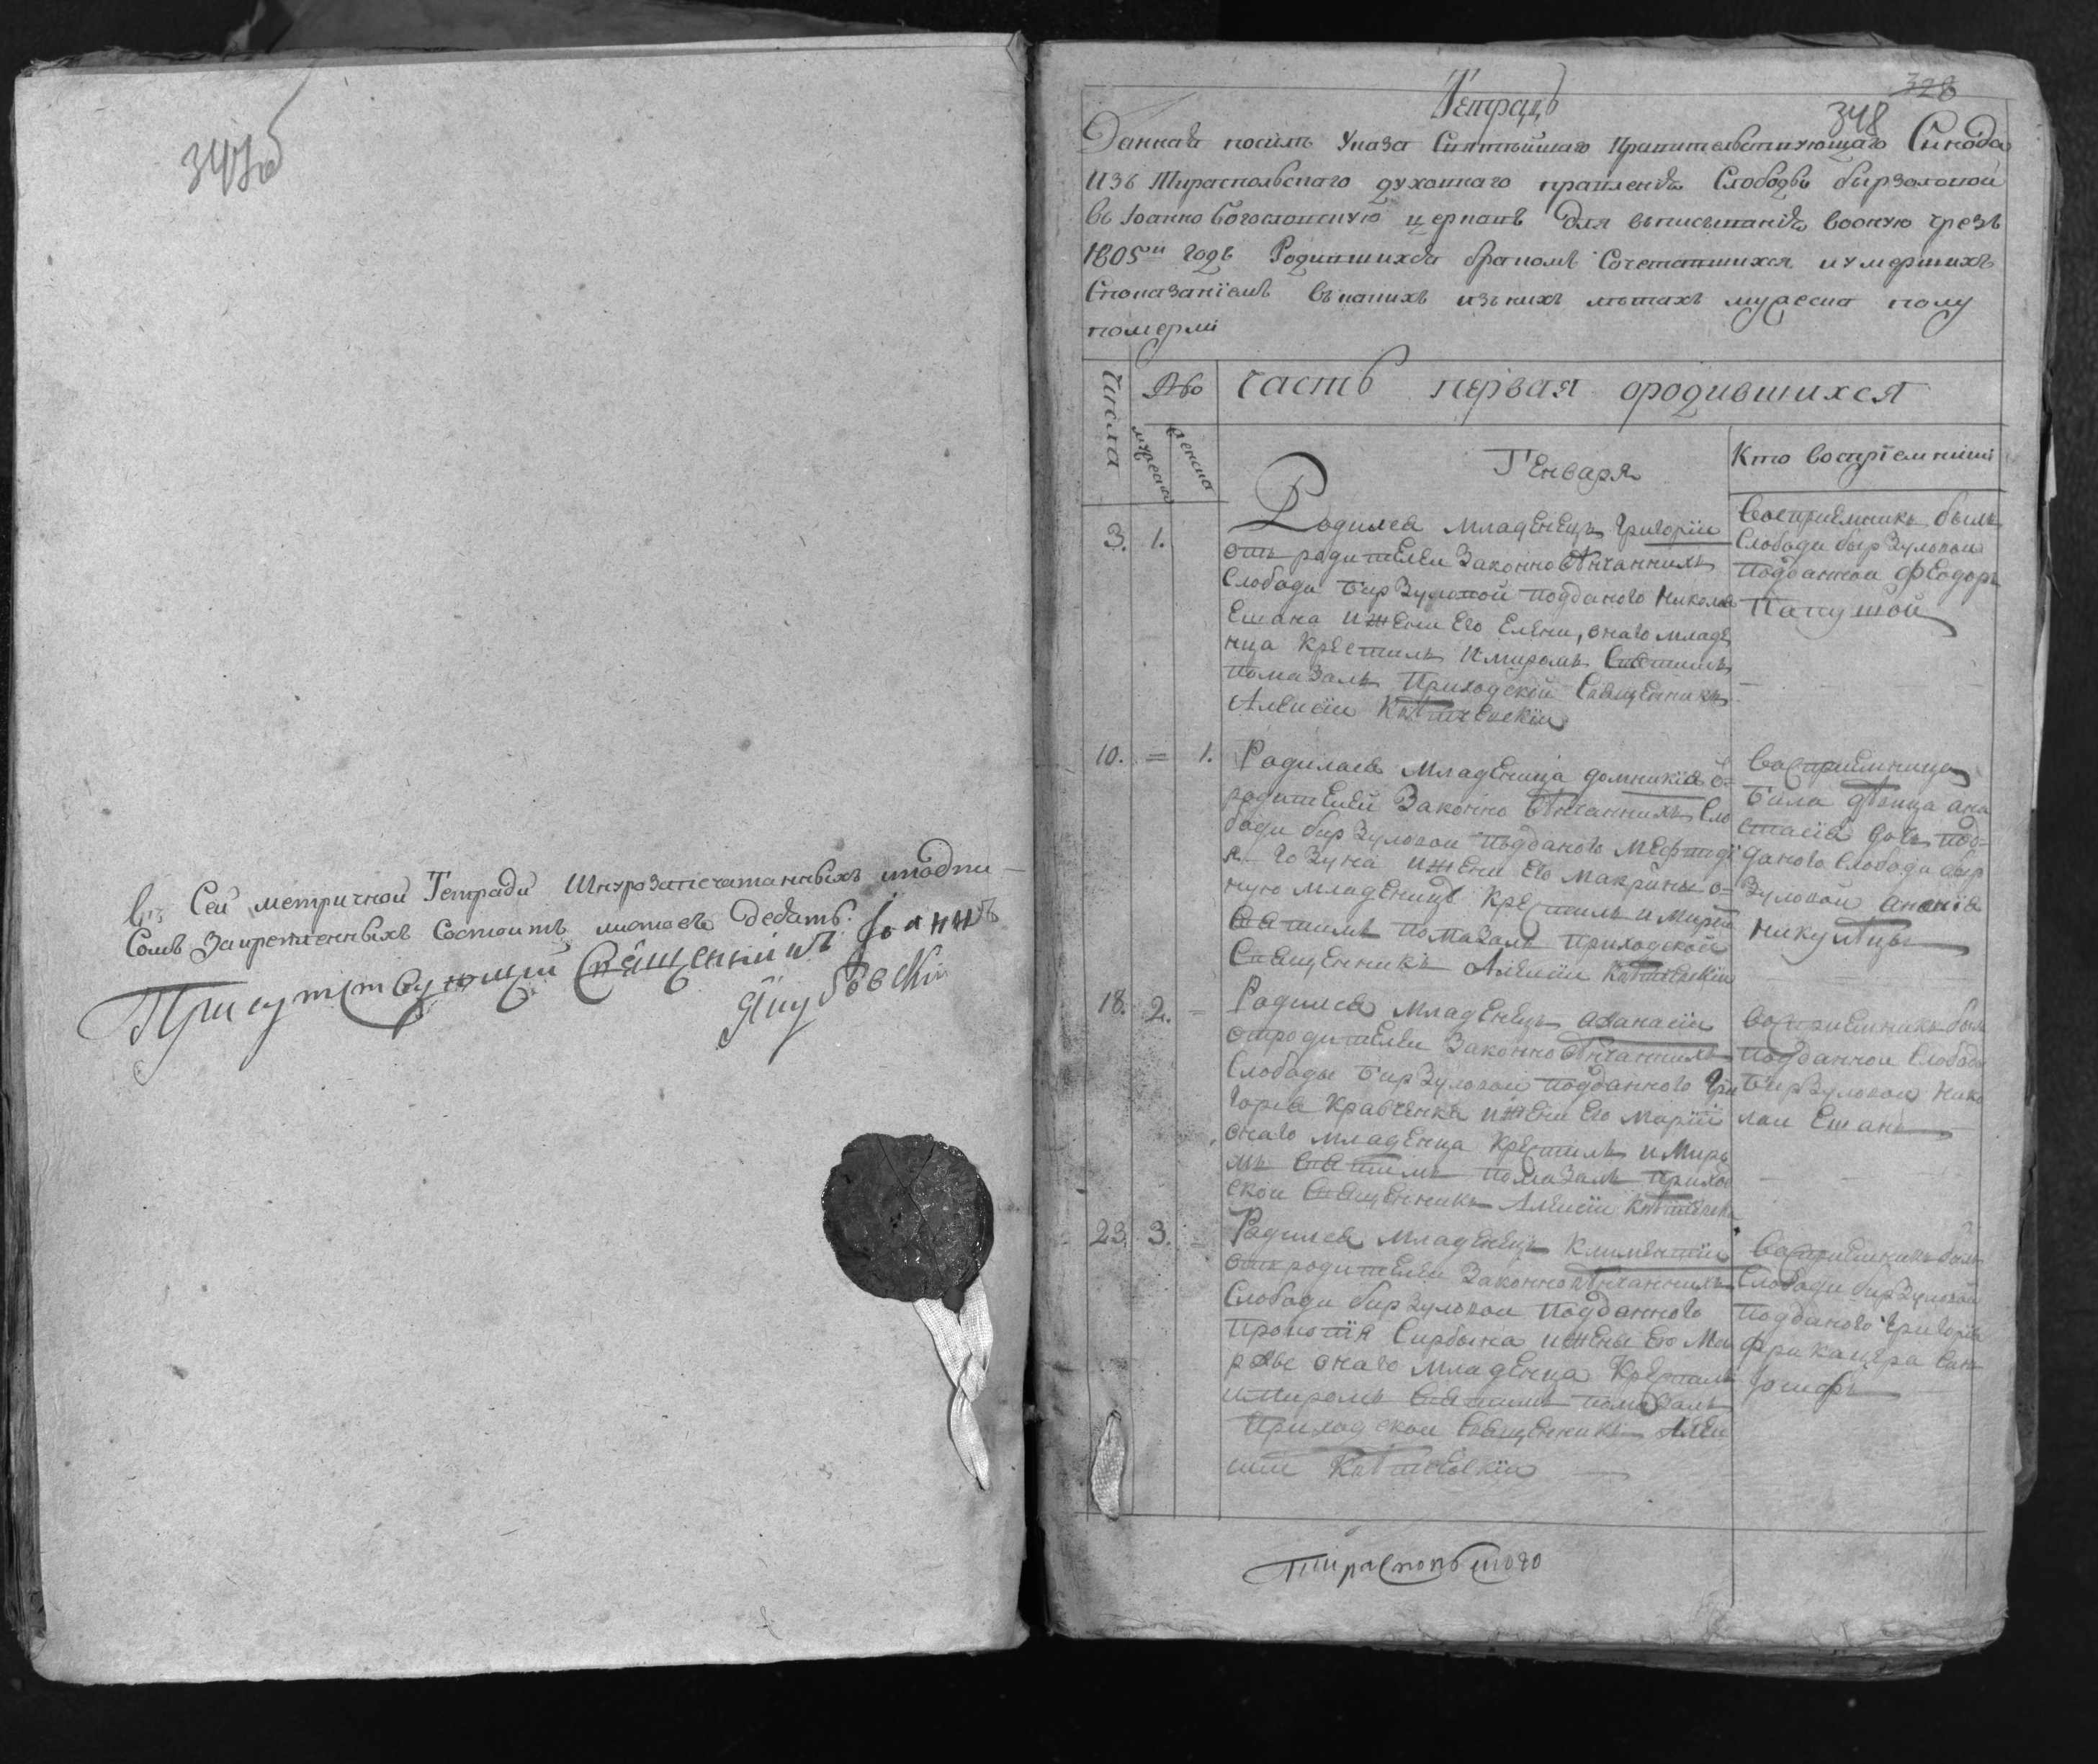 347об
Въ Сей метричной Тетради Шнурозапечатанныхъ иподпи-
сомъ Закрепленныхъ Состоитъ листовъ Девать.
Присутствующий Священникъ Іоаннъ
Якубовский
328
348
Тетрадь
Данная посилѣ Указа Святѣйшаго Правительствующаго Синода
Изъ Тираспольскаго духовнаго правления Слободы бырзоловой
въ Іоанно Богословскую церковь для вписывания вооную чрезъ
1805й годъ Родившихся бракомъ Сочетавшихся иумершихъ
Споказанїемъ въкакихъ изъ нихъ лѣтахъ мужеска полу
померли
Числа
Мужеска
женска
Часть первая ородившихся
Генваря
Кто воспрїемники
3. 1.
Родился младенецъ Григорїи
отъ родителеи Законновѣнчаннихъ
Слободи Бирзуловой подданого Никола
Ешана ижени Его Елени, онаго младе
нца Крестилъ Имиромъ Святимъ
помазалъ Приходскои Священникъ
Алексіи Квѣтчевскіи
Восприемникъ былъ
Слободи бырзуловои
подданнои Феодоръ
Папушои
10. = 1.
Родилася младеница домникия о-
родителей Законно вѣнчаннихъ Сло
боди бирзуловои подданого Мефтодї
я Гозуна ижени Его Макрины о-
ную младеницу Крестилъ и мирѡ
Святимъ помазалъ приходской
Священникъ Алексіи Квѣтчевскіи
восприемница
Била дѣвица ана
стасїя дочь под-
даного Слободи бир
зуловой Ананїя
Никулицы
18. 2. =
Родился младенецъ Афанасіи
отродителеи Законно вѣнчаннихъ
Слободы Бирзуловои подданного Гри
горїя Кравченка ижени Его Марїи
онаго младенца Крестилъ и Миро
мъ Святимъ помазалъ прихо
скои Священникъ Алексіи Квѣтчевск
восприемникъ былъ
подданнои Слободи
Бирзуловои Нико
лаи Ешанъ
23. 3. =
Родился младенецъ Климентіи
отъ родителеи Законновѣнчаннихъ
Слободи бирзуловои подданного
прокопїя Сирбына ижены Его Ма
рфы онаго младенца Крестилъ
имиромъ Святимъ помазалъ
Приходскои Священникъ Алек
сіи Квѣтчевскіи
восприемникъ былъ
Слободи бирзуловои
подданого Григорїя
Фрикацера Синъ
Іосифъ
Тираспольского